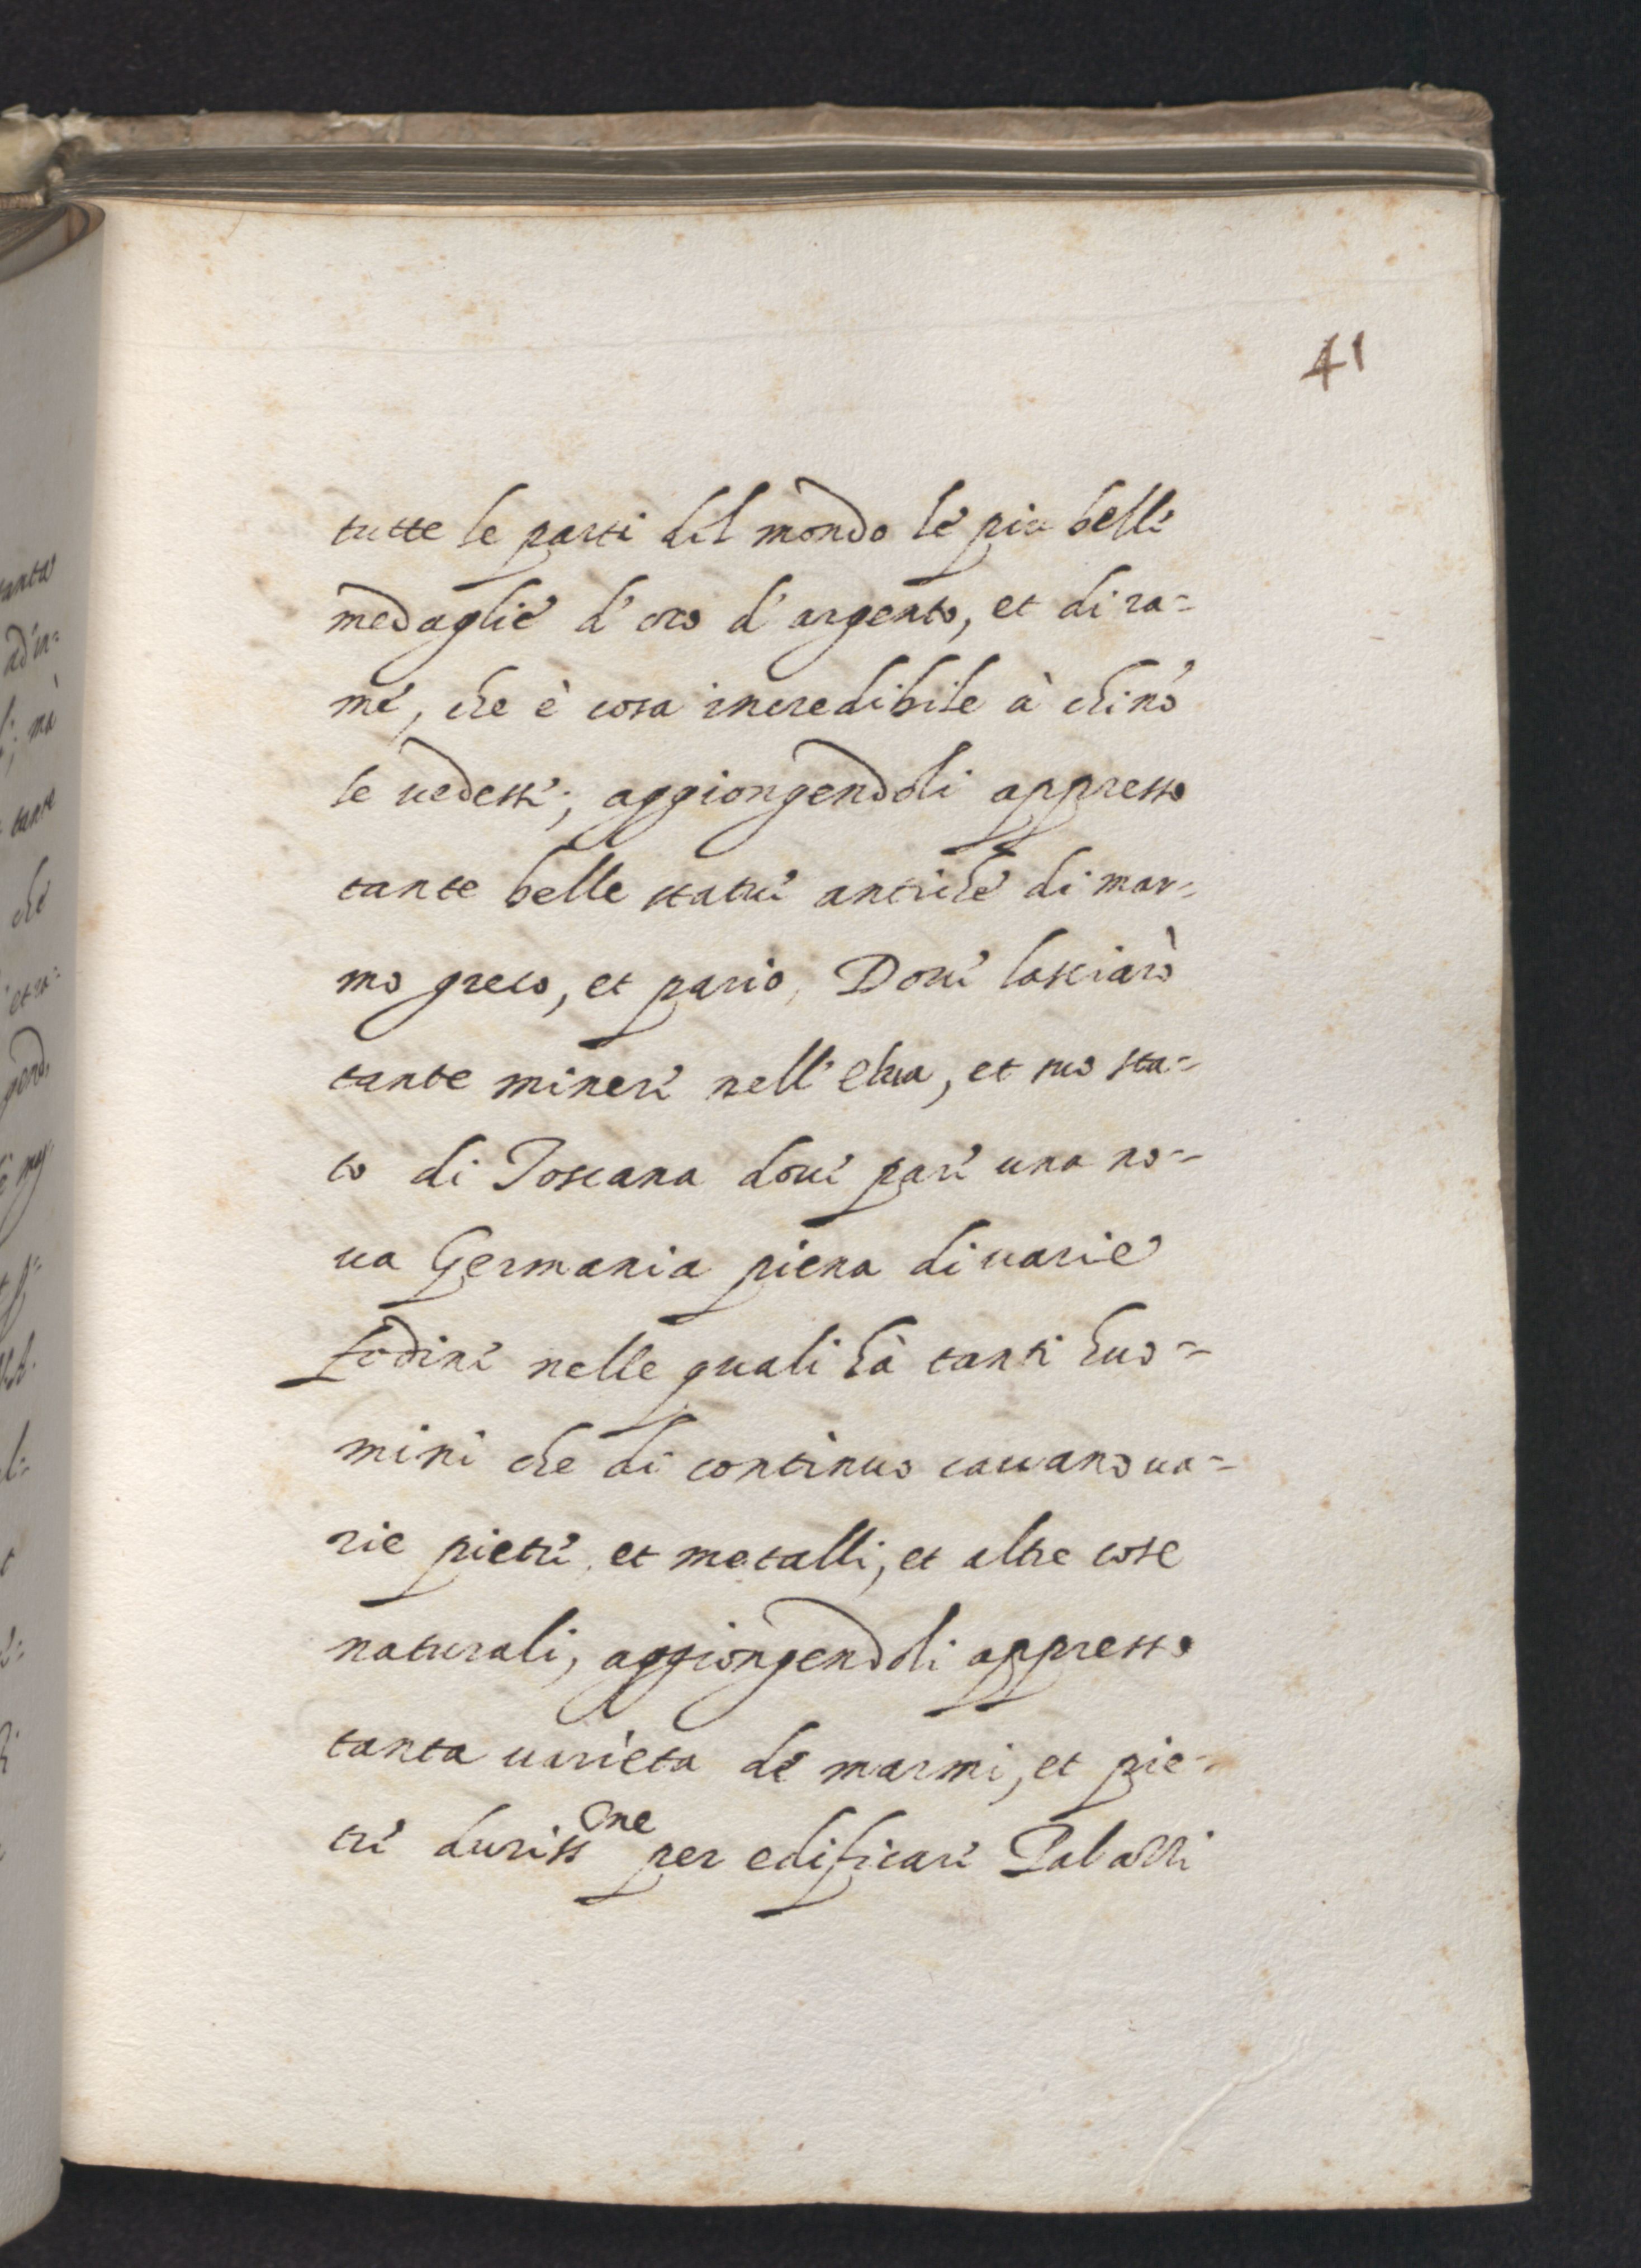 41
tutte le parti del mondo le piu belle
medaglie d'oro d'argento, et di ra=
me, che è cosa incredibile à chi nō
le uedesse; aggiongendoli appresso
tante belle statue antiche di mar=
mo greco, et pario, Doue lasciarò
tante minere nell'elua, et suo sta=
to di Toscana doue pare una no=
ua Germania piena di uarie
fodine nelle quali hà tanti huo=
mini che di continuo cauano ua=
rie pietre, et metalli, et altre cose
naturali, aggiongendoli appresso
tanta uarieta de marmi, et pie=
tre duriss me per edificare Palazzi